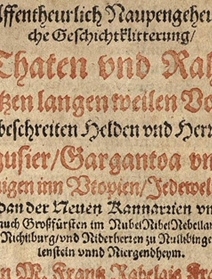 Affentheurlich Naupengeheur
che Geschichtklitterung/
Thaten vnd Rah
tzen langen weilen Vo
beschreiten Helden vnd Herr
gusier/Gargantoa vn
nigen inn Vtopien/Jedewel
dan der Neuen Kannarien vn
auch Großfürsten im NubelNibelNebelland
Nichtburg/vnd Niderherren zu Nullibinge
lenstein vnnd Niergendheym.
M. Frantz Rabelais